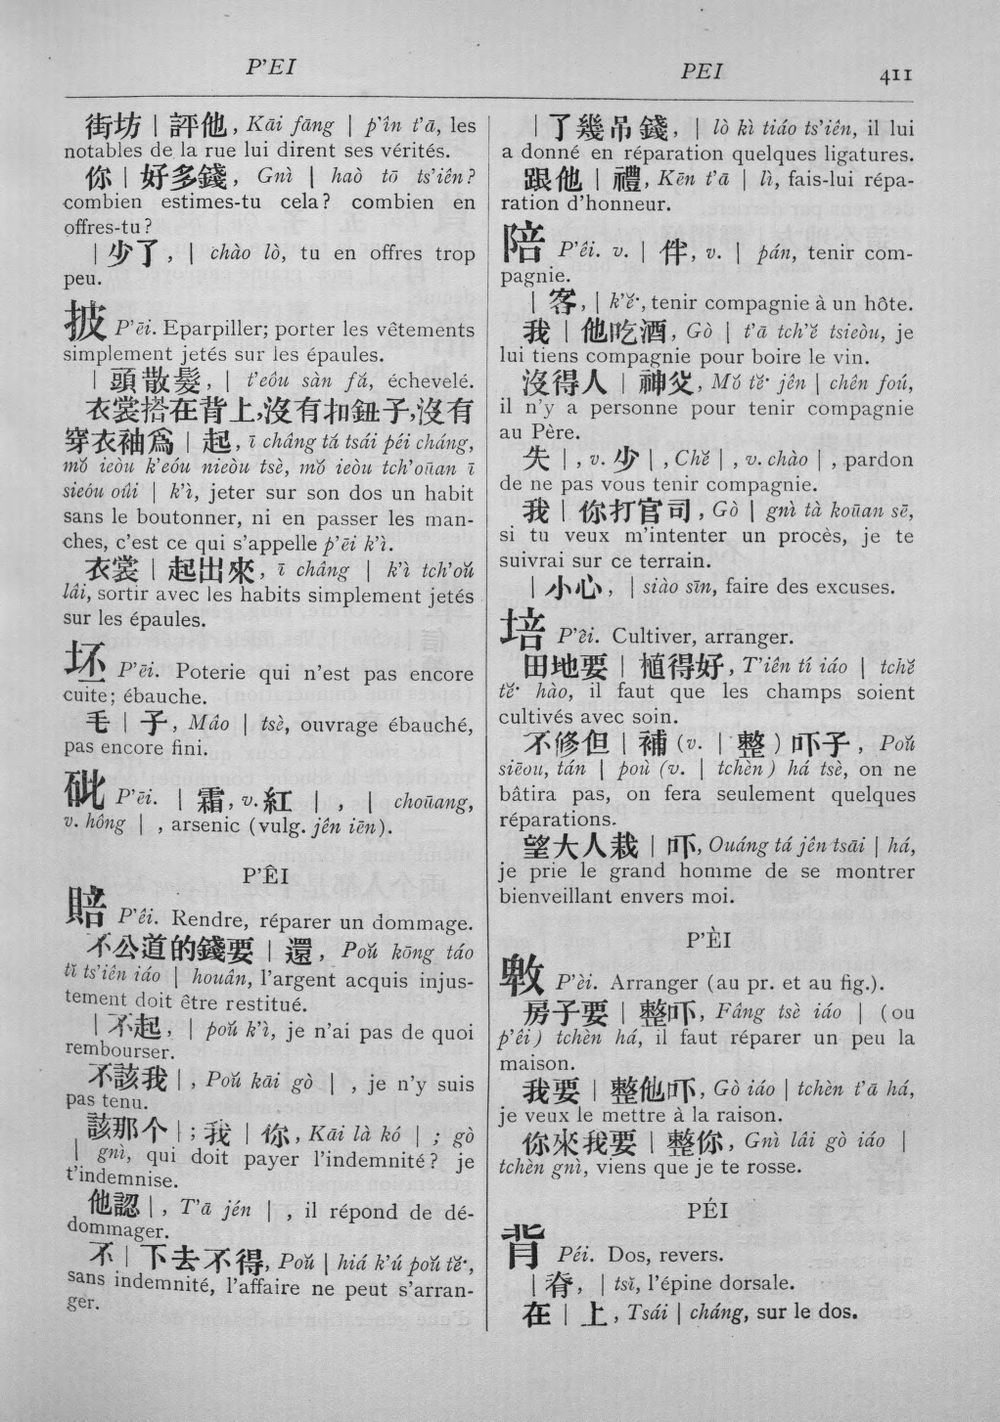 P’EI
PEI
411
街坊 | 評他, Kāi fāng | p‘în t‘ā, les
notables de la rue lui dirent ses vérités.
你 | 好多錢, Gnì | haò tō ts‘iên?
combien estimes-tu cela? combien en
offres-tu?
| 少了, | chào lò, tu en offres trop
peu.
披 P‘ēi. Eparpiller; porter les vêtements
simplement jetés sur les épaules.
| 頭散髮, | t‘eôu sàn fǎ, échevelé.
衣裳搭在背上,沒有扣鈕子,沒有
穿衣袖爲 | 起, ī châng tǎ tsái péi cháng,
mǒ ieòu k‘eóu nieòu tsè, mǒ ieòu tch‘oūan ī
sieóu oûi | k‘ì, jeter sur son dos un habit
sans le boutonner, ni en passer les man-
ches, c’est ce qui s’appelle p‘ēi k‘ì.
衣裳 | 起出來, ī châng | k‘ì tch‘oǔ
lâi, sortir avec les habits simplement jetés
sur les épaules.
坯 P‘ēi. Poterie qui n’est pas encore
cuite; ébauche.
毛 | 子, Mâo | tsè, ouvrage ébauché,
pas encore fini.
砒 P‘ēi. | 霜, v. 紅 | , | choūang,
v. hông | , arsenic (vulg. jên iēn).
P’ÊI
賠 P‘êi. Rendre, réparer un dommage.
不公道的錢要 | 還, Poǔ kōng táo
tǐ ts‘iên iáo | houân, l’argent acquis injus-
tement doit être restitué.
| 不起, | poǔ k‘ì, je n’ai pas de quoi
rembourser.
不該我 | , Poǔ kāi gò | , je n’y suis
pas tenu.
該那个 | ; 我 | 你, Kāi là kó | ; gò
| gnì, qui doit payer l’indemnité? je
t’indemnise.
他認 | , T‘ā jén | , il répond de dé-
dommager.
不 | 下去不得, Poǔ | hiá k‘ú poǔ tě·,
sans indemnité, l’affaire ne peut s’arran-
ger.
| 了幾吊錢, | lò kì tiáo ts‘iên, il lui
a donné en réparation quelques ligatures.
跟他 | 禮, Kēn t‘ā | lì, fais-lui répa-
ration d’honneur.
陪 P‘êi. v. | 伴, v. | pán, tenir com-
pagnie.
| 客, | k‘ě·, tenir compagnie à un hôte.
我 | 他吃酒, Gò | t‘ā tch‘ě tsieòu, je
lui tiens compagnie pour boire le vin.
沒得人 | 神父, Mǒ tě· jên | chên foú,
il n’y a personne pour tenir compagnie
au Père.
失 | , v. 少 | , Chě | , v. chào | , pardon
de ne pas vous tenir compagnie.
我 | 你打官司, Gò | gnì tà koūan sē,
si tu veux m’intenter un procès, je te
suivrai sur ce terrain.
| 小心, | siào sīn, faire des excuses.
培 P‘êi. Cultiver, arranger.
田地要 | 植得好, T‘iên tí iáo | tchě
tě· hào, il faut que les champs soient
cultivés avec soin.
不修但 | 補 (v. | 整) 吓子, Poǔ
siēou, tán | poù (v. | tchèn) há tsè, on ne
bâtira pas, on fera seulement quelques
réparations.
望大人栽 | 吓, Ouáng tá jên tsāi | há,
je prie le grand homme de se montrer
bienveillant envers moi.
P’ÈI
P‘èi. Arranger (au pr. et au fig.).
房子要 | 整吓, Fâng tsè iáo | (ou
p‘êi) tchèn há, il faut réparer un peu la
maison.
我要 | 整他吓, Gò iáo | tchèn t‘ā há,
je veux le mettre à la raison.
你來我要 | 整你, Gnì lâi gò iáo |
tchèn gnì, viens que je te rosse.
PÉI
背 Péi. Dos, revers.
| 脊, | tsǐ, l’épine dorsale.
在 | 上, Tsái | cháng, sur le dos.